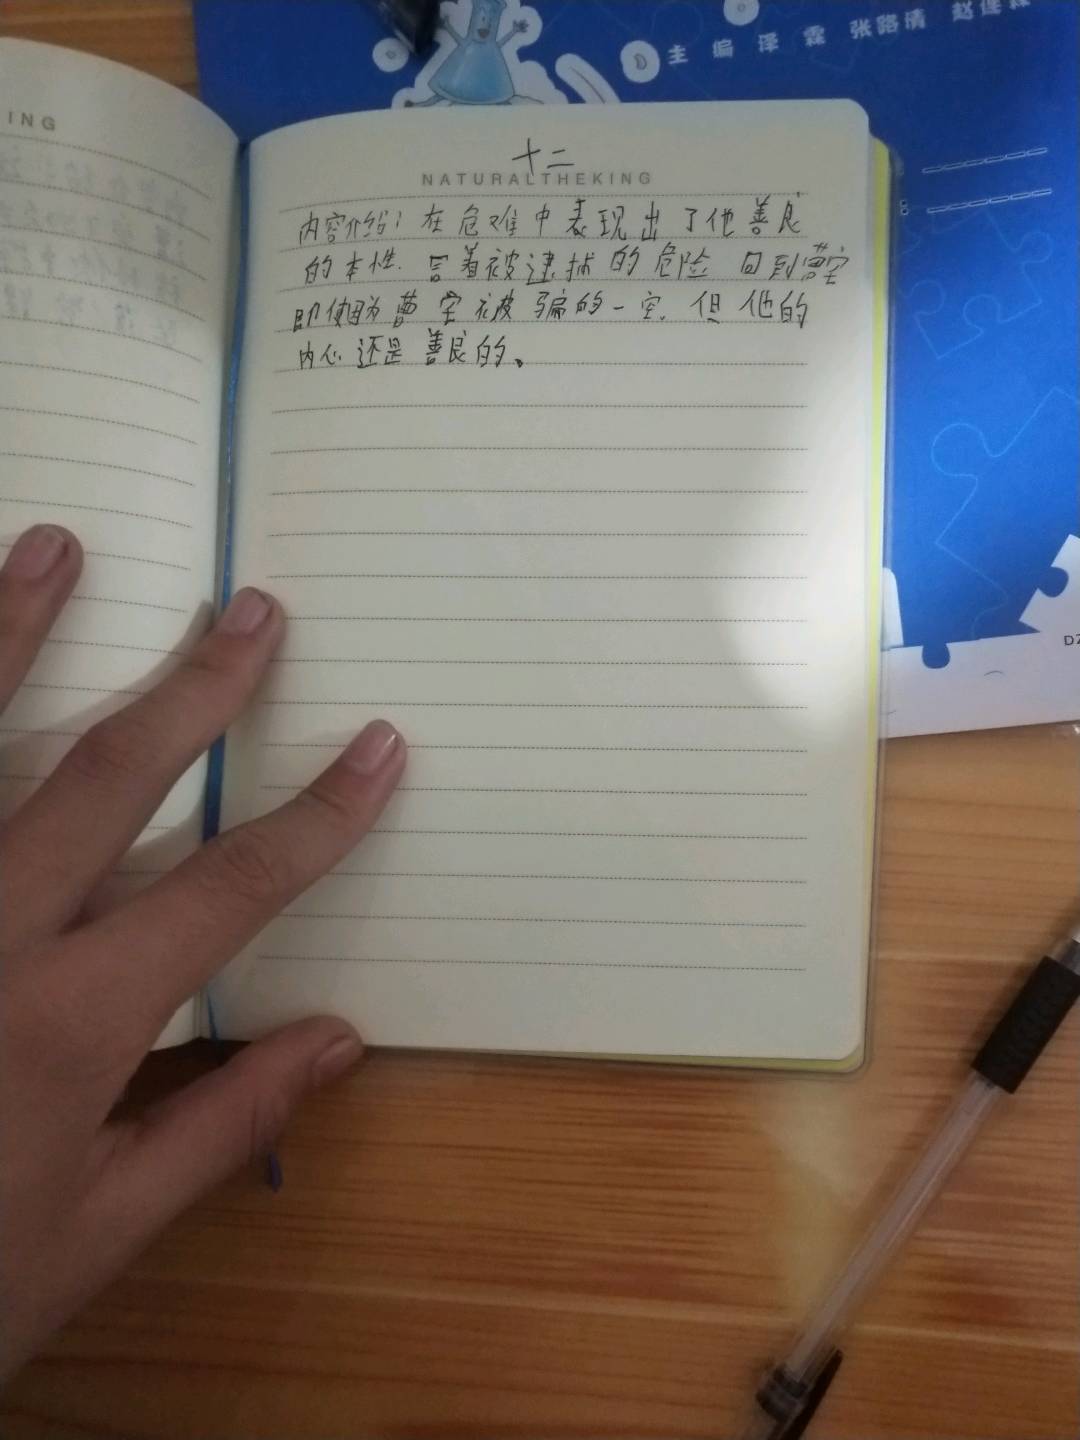 ING
主编 译霖 张路清 赵
十二
NATURALTHEKING
内容介绍：在危难中表现出了他善良
的本性.冒着被逮捕的危险 回到曹宅
即使因为曹宅被骗的一空.但他的
内心还是善良的、
DZ